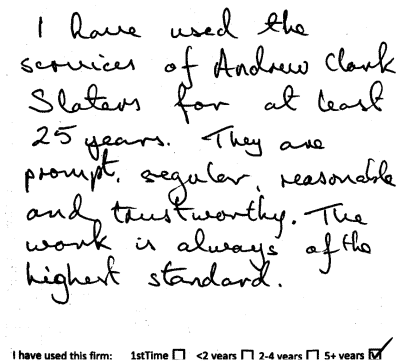 I have used the
services of Andrew Clark
Slaters for at least
25 years. They are
prompt, regular, reasonable
and trustworthy. The
work is always of the
highest standard.
I have used this firm: 1stTime ☐ <2 years ☐ 2-4 years ☐ 5+ years ☑